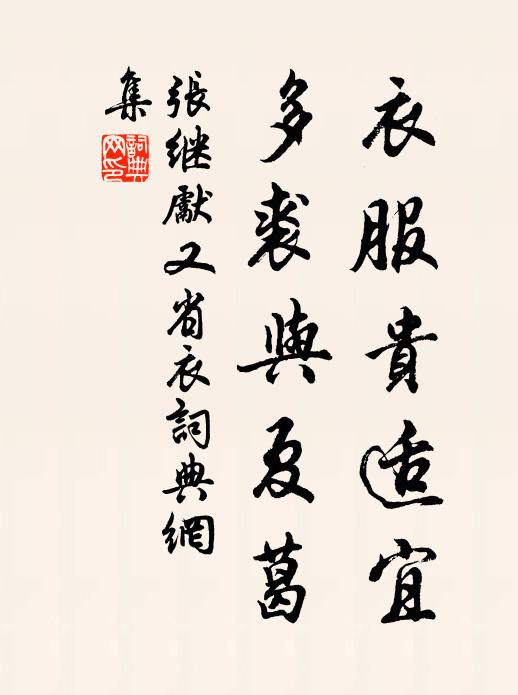 衣服貴适宜
多裘與夏葛
張继獻又省衣詞典網
集
詞典网印